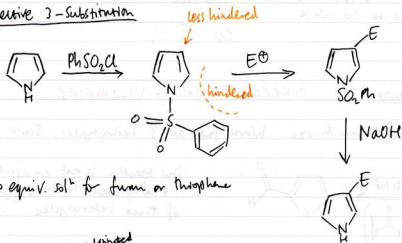 ective 3-Substitution
less hindered
E
PhSO₂Cl
E⊕
hindered
N
H
N
N
SO₂Ph
O
S
O
NaOH
o equiv. solⁿ for furan or thiophene
E
N
H